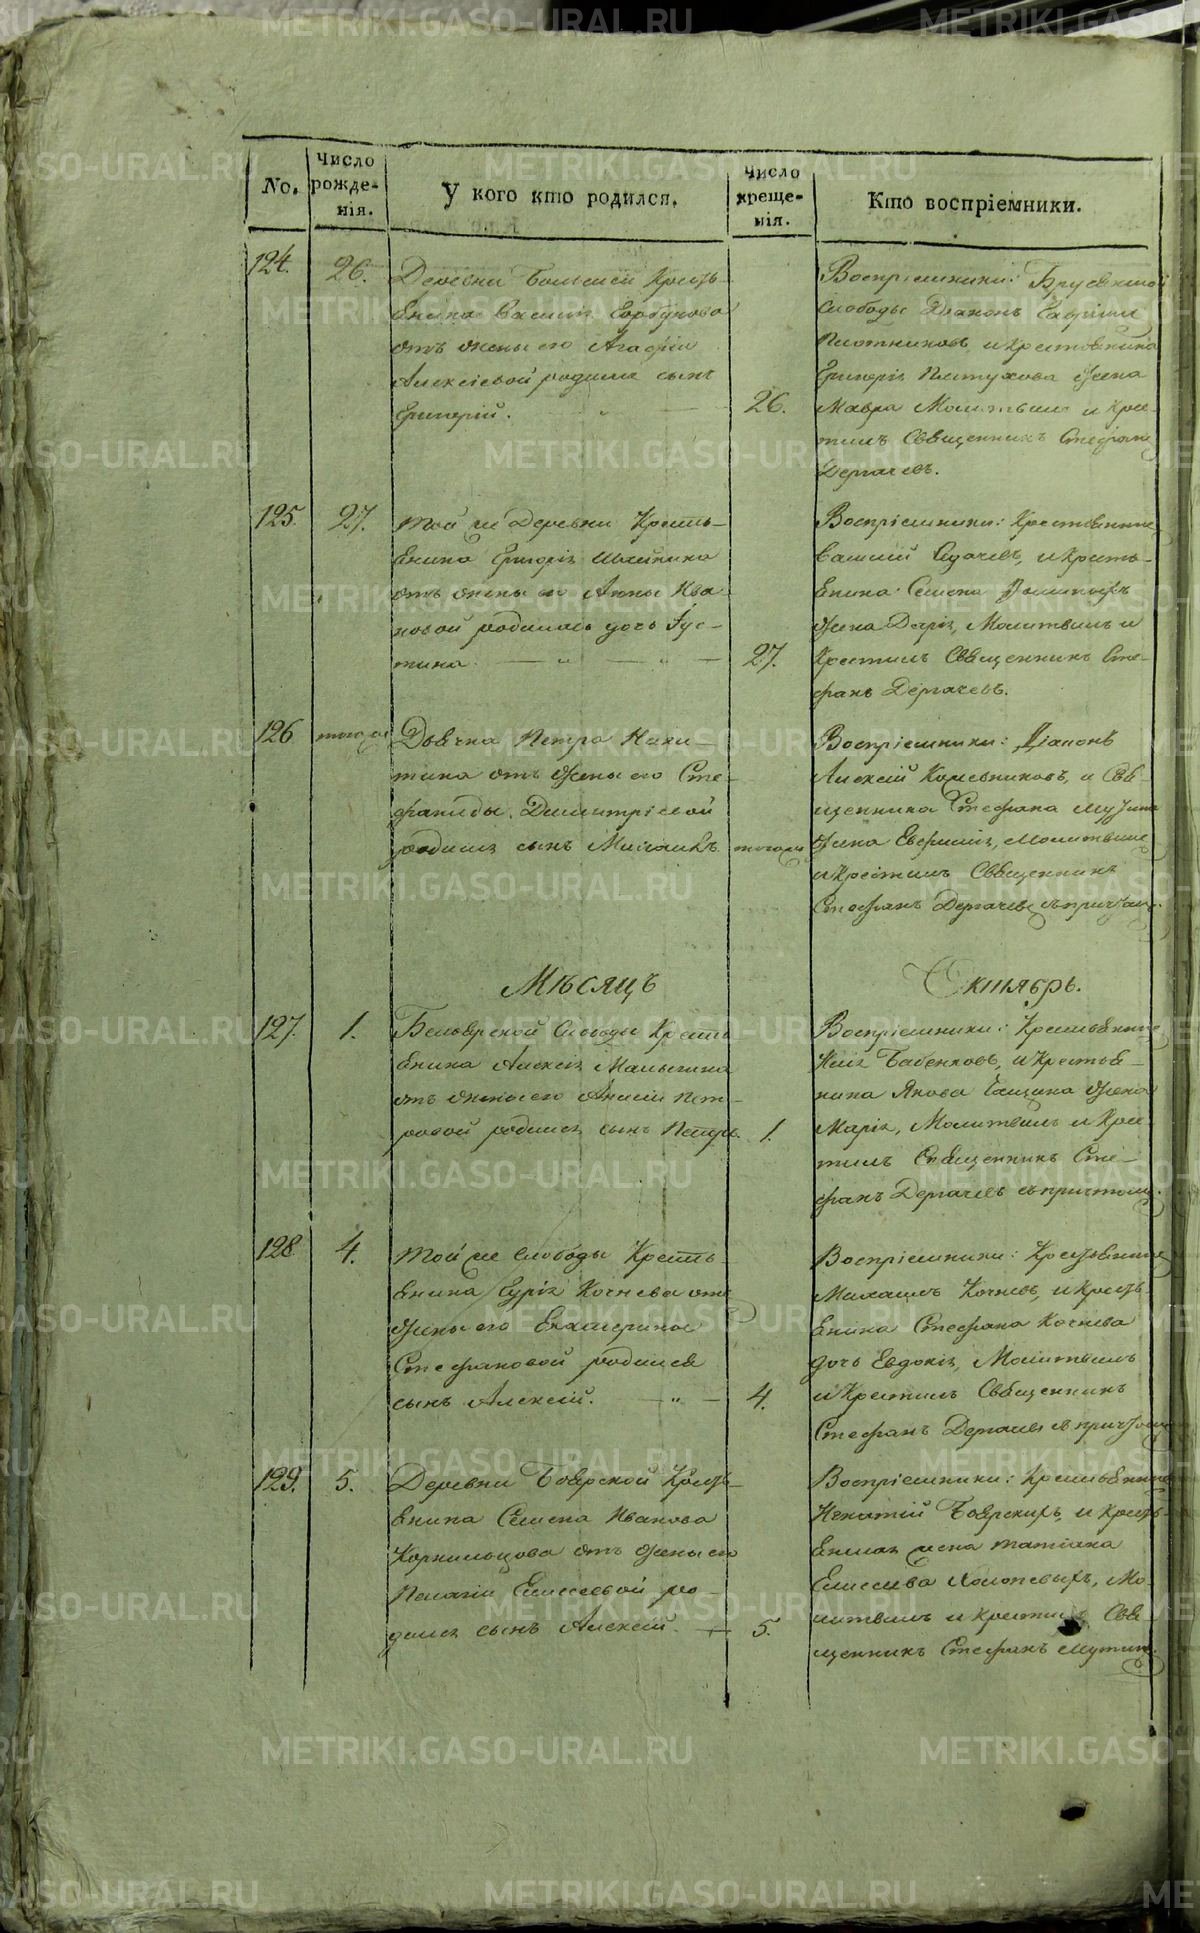 No.
Число рожденія.
У кого кто родился.
Число крещенія.
Кто воспріемники.
124.
26.
Деревни Большей Кресть-
янина Василія Горбунова
отъ жены его Агафіи
Алексіевой родился сынъ
Григорій.
26.
Воспріемники: Брусянской
слободы Діаконъ Гавріилъ
Плотниковъ, и крестьянина
Григорія Пастухова жена
Мавра Молитвилъ и Крес-
тилъ Священникъ Стефанъ
Дергачевъ.
125.
27.
Той же Деревни Кресть-
янина Григорія
отъ жены его Анны Ива-
новой родилась дочь Іус-
тина
27.
Воспріемники: Крестьянинъ
Василій и Кресть-
янина Семена
жена Дарія, Молитвилъ и
Крестилъ Священникъ Сте-
фанъ Дергачевъ.
126
тогоже
Дьячка Петра Ники-
тина отъ жены его Сте-
фаниды Димитріевой
родился сынъ Михаилъ
тогоже
Воспріемники: Діаконъ
Алексій и Свя-
щенника Стефана Мутина
жена Евфимія, Молитвилъ
и Крестилъ Священникъ
Стефанъ Дергачевъ съ причтомъ.
Мѣсяцъ
Октябрь.
127.
1.
Белоярской Слободы Кресть
янина Алексія Малыгина
отъ жены его Анисіи Пет-
ровой родился сынъ Петръ.
1.
Воспріемники: Крестьянинъ
Илія Бабенковъ, и Крестья-
нина Якова жена
Марія, Молитвилъ и Крес-
тилъ Священникъ Сте-
фанъ Дергачевъ съ причтомъ.
128
4.
Той же слободы Кресть
янина Гурія Кочнева отъ
жены его Екатерины
Стефановой родился
сынъ Алексій.
4.
Воспріемники: Крестьянинъ
Михаилъ Кочневъ, и Кресть
янина Стефана Кочнева
дочь Евдокія, Молитвилъ
и Крестилъ Священникъ
Стефанъ Дергачевъ съ причтомъ
129.
5.
Деревни Боярской Кресть-
янина Семена Иванова
Корнильцова отъ жены его
Пелагіи Елисеевой ро-
дился сынъ Алексій.
5.
Воспріемники: Крестьянинъ
Игнатій Боярскихъ, и Кресть-
янская жена Татіана
Елисеева Холоповыхъ, Мо-
литвилъ и Крестилъ Свя
щенникъ Стефанъ Мутинъ.
METRIKI.GASO-URAL.RU